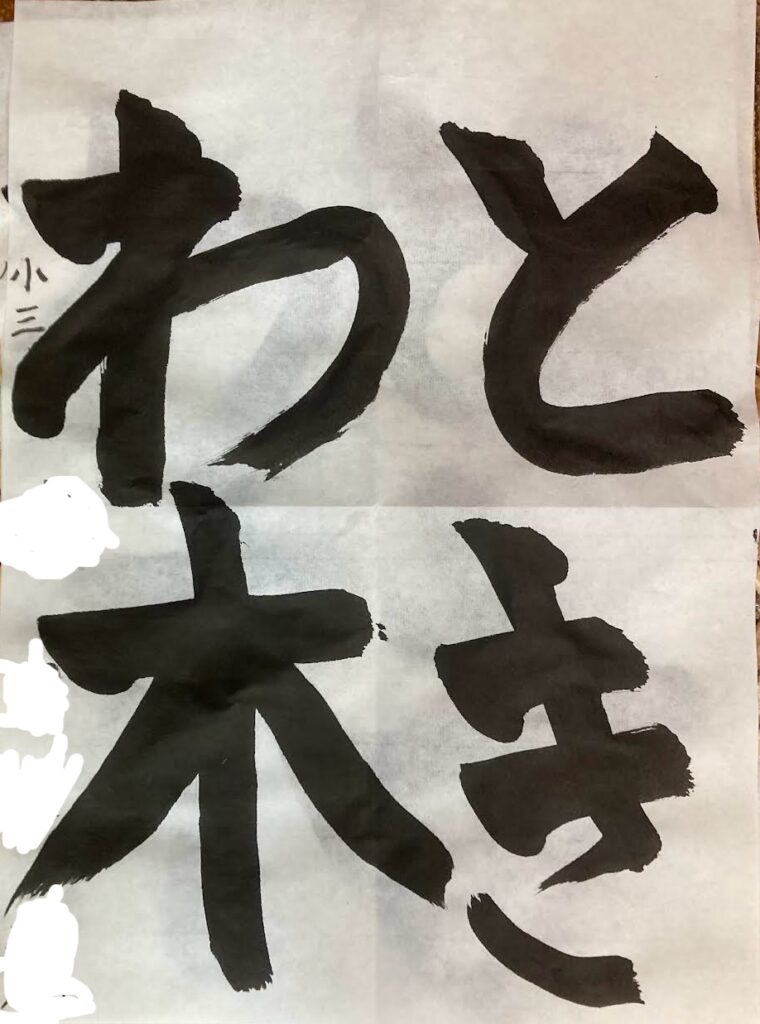 とき
わ木
小三